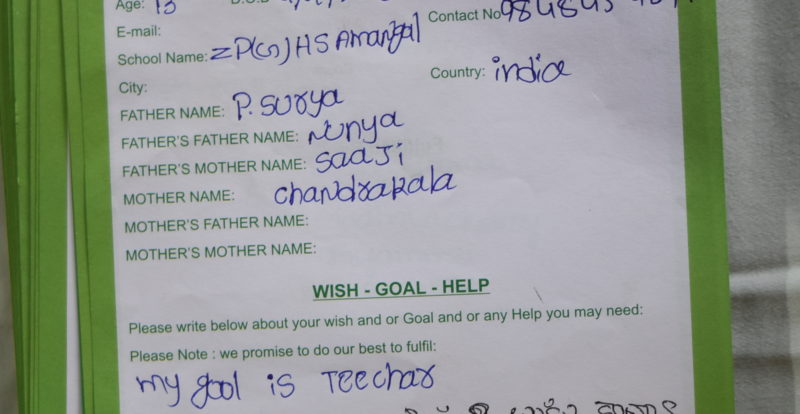 Age: 13
Contact No
E-mail:
School Name: ZP(G)HS Amangal
City: Country: india
FATHER NAME: P. Surya
FATHER'S FATHER NAME: Nunya
FATHER'S MOTHER NAME: Saaji
MOTHER NAME: chandrakala
MOTHER'S FATHER NAME:
MOTHER'S MOTHER NAME:
WISH - GOAL - HELP
Please write below about your wish and or Goal and or any Help you may need:
Please Note : we promise to do our best to fulfil:
my gool is Teechar